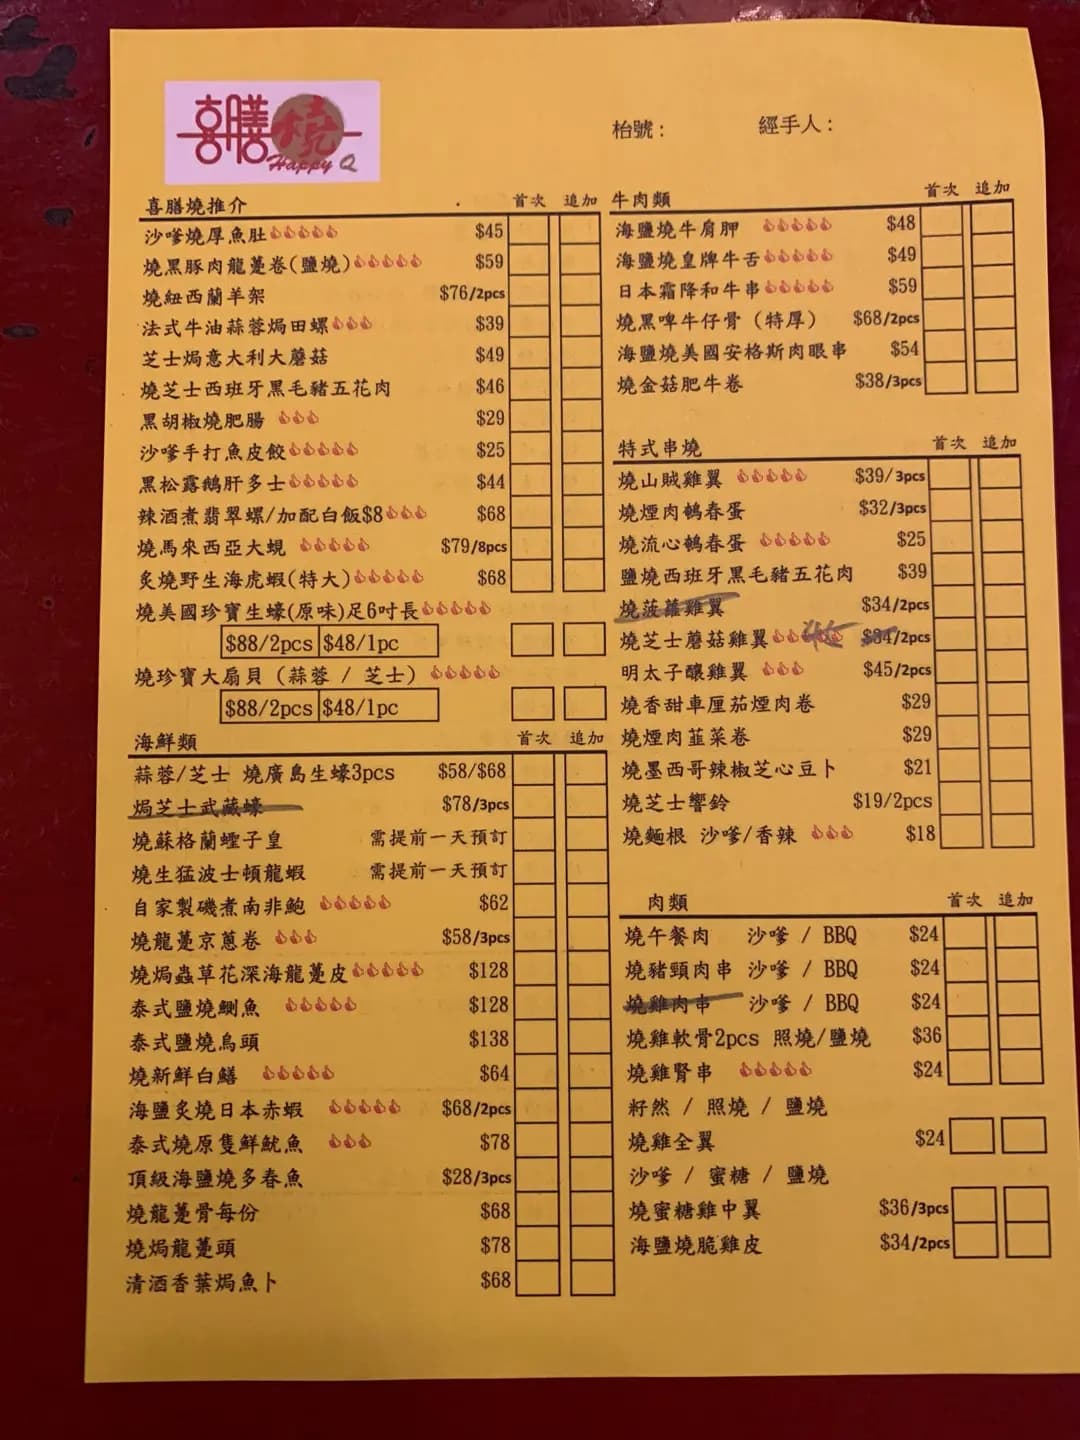 喜膳燒
Happy Q
枱號：
經手人：
喜膳燒推介 首次 追加
沙嗲燒厚魚肚 $45
燒黑豚肉龍躉卷(鹽燒) $59
燒紐西蘭羊架 $76/2pcs
法式牛油蒜蓉焗田螺 $39
芝士焗意大利大蘑菇 $49
燒芝士西班牙黑毛豬五花肉 $46
黑胡椒燒肥腸 $29
沙嗲手打魚皮餃 $25
黑松露鵝肝多士 $44
辣酒煮翡翠螺/加配白飯$8 $68
燒馬來西亞大蜆 $79/8pcs
炙燒野生海虎蝦(特大) $68
燒美國珍寶生蠔(原味)足6吋長
$88/2pcs $48/1pc
燒珍寶大扇貝 (蒜蓉 / 芝士)
$88/2pcs $48/1pc
海鮮類 首次 追加
蒜蓉/芝士 燒廣島生蠔3pcs $58/$68
焗芝士武藏蠔 $78/3pcs
燒蘇格蘭蟶子皇 需提前一天預訂
燒生猛波士頓龍蝦 需提前一天預訂
自家製磯煮南非鮑 $62
燒龍躉京蔥卷 $58/3pcs
燒焗蟲草花深海龍躉皮 $128
泰式鹽燒鰂魚 $128
泰式鹽燒烏頭 $138
燒新鮮白鱔 $64
海鹽炙燒日本赤蝦 $68/2pcs
泰式燒原隻鮮魷魚 $78
頂級海鹽燒多春魚 $28/3pcs
燒龍躉骨每份 $68
燒焗龍躉頭 $78
清酒香葉焗魚卜 $68
牛肉類 首次 追加
海鹽燒牛肩胛 $48
海鹽燒皇牌牛舌 $49
日本霜降和牛串 $59
燒黑啤牛仔骨 (特厚) $68/2pcs
海鹽燒美國安格斯肉眼串 $54
燒金菇肥牛卷 $38/3pcs
特式串燒 首次 追加
燒山賊雞翼 $39/3pcs
燒煙肉鵪春蛋 $32/3pcs
燒流心鵪春蛋 $25
鹽燒西班牙黑毛豬五花肉 $39
燒菠蘿雞翼 $34/2pcs
燒芝士蘑菇雞翼 $34/2pcs
明太子釀雞翼 $45/2pcs
燒香甜車厘茄煙肉卷 $29
燒煙肉韮菜卷 $29
燒墨西哥辣椒芝心豆卜 $21
燒芝士響鈴 $19/2pcs
燒麵根 沙嗲/香辣 $18
肉類 首次 追加
燒午餐肉 沙嗲 / BBQ $24
燒豬頸肉串 沙嗲 / BBQ $24
燒雞肉串 沙嗲 / BBQ $24
燒雞軟骨2pcs 照燒/鹽燒 $36
燒雞腎串 $24
籽然 / 照燒 / 鹽燒
燒雞全翼 $24
沙嗲 / 蜜糖 / 鹽燒
燒蜜糖雞中翼 $36/3pcs
海鹽燒脆雞皮 $34/2pcs